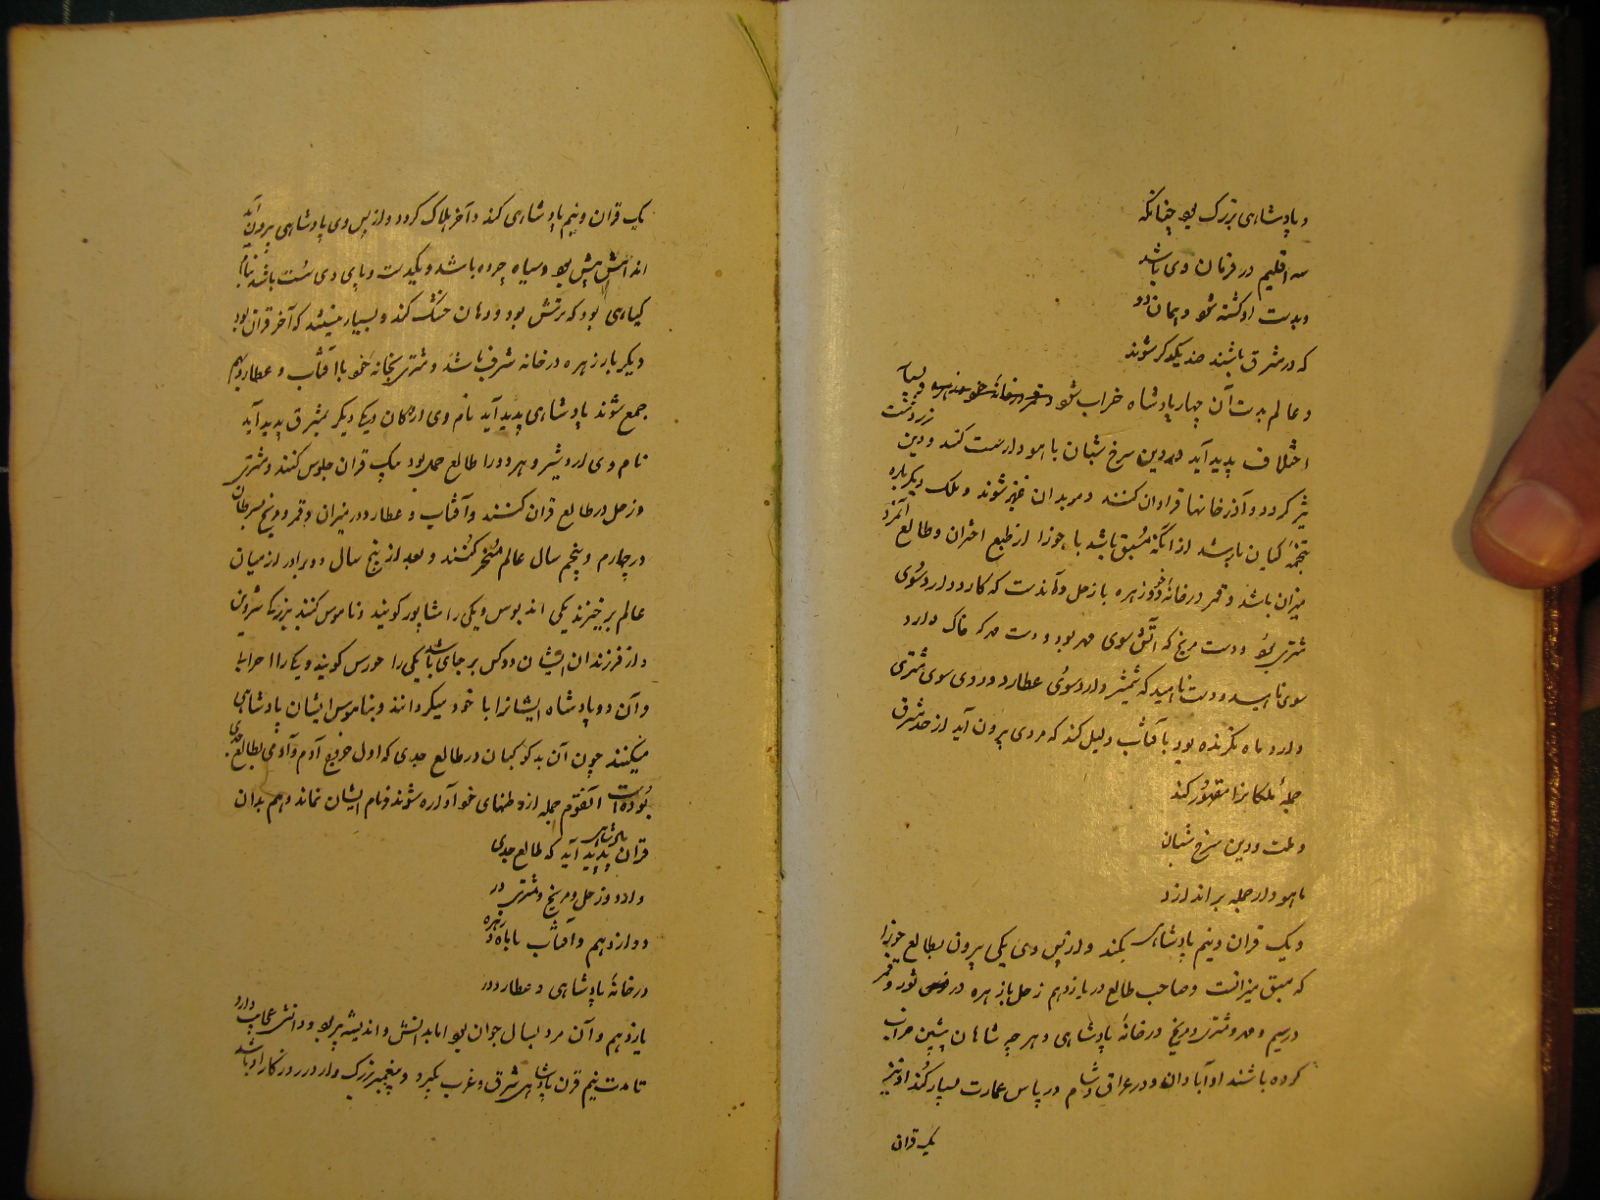 و پادشاهی بزرگ بود چنانکه
سه اقلیم در فرمان وی باشد
و بدست او کشته شود و همان دو
که در شرق باشند ضد یکدیگر شوند
و عالم بدست آن چهار پادشاه خراب شود و بسیار
اختلاف پدید آید و دین سرخ شبان باهودار پست کند و دین زردشت
تیز گردد و آذرخانها فراوان کنند و موبدان عزیز شوند و ملک دیگر باره
بتخمهٔ کیان باز رسد از آنکه مسبق باشد با جوزا از طبع اختران و طالع آنمرد
میزان باشد و قمر در خانهٔ خود و زهره با زحل و آندست که کارد دارد سوی
مشتری بود و دست مریخ که آتش سوی مه بود و دست مه که خاک دارد
سوی ناهید و دست ناهید که شمشیر دارد سوی عطارد و روی سوی مشتری
دارد ماه نگرنده بود بآفتاب دلیل کند که مردی بیرون آید از حد شرق
جملهٔ ملکانرا مقهور کند
و ملت و دین سرخ شبان
باهودار جمله براندازد
و یک قران و نیم پادشاهی بکند و از پس وی یکی بیرون بطالع جوزا
که مسبق میزانست و صاحب طالع در یازدهم زحل باز هره در ثور و قمر
در سیم و مه و مشتری و مریخ در خانهٔ پادشاهی و هر چه شاهان پیشین خراب
کرده باشند او آبادان و در عراق و شام و پارس عمارت بسیار کند او نیز
یک قران
یک قران و نیم پادشاهی کند و آخر هلاک گردد و از پس وی پادشاهی بیرون آید
اندامش پیس بود و سیاه چرده باشد و یکدست و پای وی سست باشد بنام
کیاهی بود که ترش بود و دهان خشک کند و بسیار بینشند که آخر قران بود
دیگر بار زهره در خانه شرف باشد و مشتری بخانه خود با آفتاب و عطارد بهم
جمع شوند پادشاهی پدید آید نام وی ارمکان و یکی دیگر بمشرق پدید آید
نام وی اردشیر و هر دو را طالع حمل بود بیک قران جلوس کنند و مشتری
و زحل در طالع قران کنند و آفتاب و عطارد در میزان و قمر و مریخ بسرطان
در چهارم و پنجم سال عالم مسخر کنند و بعد از پنج سال دو برادر از میان
عالم برخیزند یکی اندبوس و یکی را شاپور گویند و ناموس کنند بزرگ شروین
و از فرزندان ایشان دو کس بر جای باشد یکی را خورس گویند و یکی را
و آن دو پادشاه ایشانرا با خود میگردانند و بناموس ایشان پادشاهی
میکنند چون آن بدگو کیان در طالع جدی که اول خروج آدم و آدمی بطالع جدی
بوده است آنقوم جمله از وطنهای خود آواره شوند و نام ایشان نماند و هم بدان
قران پادشاهی پدید آید که طالع جدی
دارد و زحل و مریخ و مشتری در
دوازدهم و آفتاب با ماه و زهره
در خانهٔ پادشاهی و عطارد در
یازدهم و آن مرد بسال جوان بود اما بدانش و اندیشه پیر بود و دانش عجایب دارد
تا مدت نیم قرن پادشاهی شرق و غرب بگیرد و پیغمبر بزرگ وار در روزگار او باشد